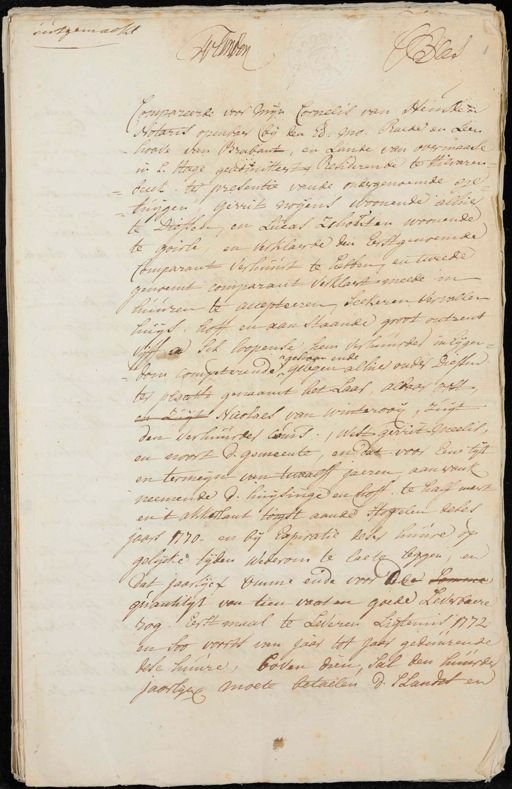 uitgemaakt
Compareerde voor mijn Cornelis van
Notaris openbaer bij den Ed. mo. Raede en Leen
hoove van Brabant, en Lande van overmaase
in S. Hage geadmitteert, Residerende te Hilvaren
beek, te presentie vande onderge noemde ge
tuijgen, Gerrit woonende alhier
te Diessen, en Lucas Scholsten woonende
te goirle, en verklaerde den Eerstgenoemde
Comparant verhuurt te hebben, en tweede
genoemt comparant verklaert meede in
huuren te accepteeren, seekeren
huijs, hoff en aanstaande groot ontrent
Lop. loopense hem verhuurder in Eijgen
dom competeerende gelegen alhier onder Diessen
ter plaatse genaamt het Laar,
Nicolaes van Wintroij, Zuijt
den verhuurder Cours., West gerrit
en noort d. gemeente, en dat voor Eene tijt
en termeijn van jaeren, aanvank
neemende d. huijsinge en hoff te halff mert
en t ackerlant aande Stoppelen deses
jaars 1770. en bij Expiratie deser huure op
gelijcke tijden wederom te laete leggen, en
dat jaarlijx omme ende voor Dee Somme
quantitijt van tien vaaten goede Leverbaere
Rog. Eerst maal te Leveren Ligtmis 1772
en soo voorts van jaar tot jaar geduurende
dese huure, boven dien, sal den huurder
jaarlijx moete betaelen d. S Landts en